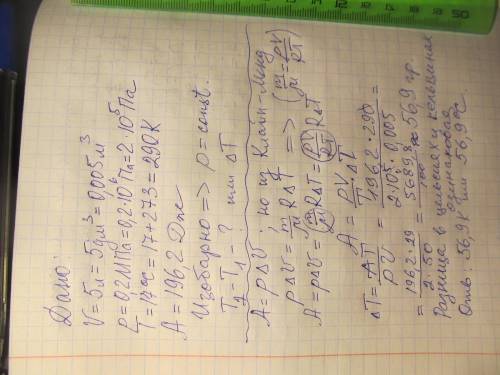 Дано:
V = 5л = 5дм³ = 0,005м³
P = 0,2МПа = 0,2·10⁶Па = 2·10⁵Па
T = 17°C = 17+273 = 290K
A = 196,2 Дж
Изобарно => p = const.
T₂ - T₁ - ? или ΔT
A = pΔV; но из Клайп-Менд
pΔV = m/μ RΔT => (m/μ = PV/RT)
A = pΔV = (m/μ) RΔT = (PV/RT) RΔT
A = PV/T ΔT
ΔT = AT/PV = 196,2·290/2·10⁵·0,005 =
= 196,2·29/2·50 = 5689,8/100 ≈ 56,9 гр.
Разница в цельсиях и кельвинах
одинаковая
Отв: 56,9K или 56,9°C.
50